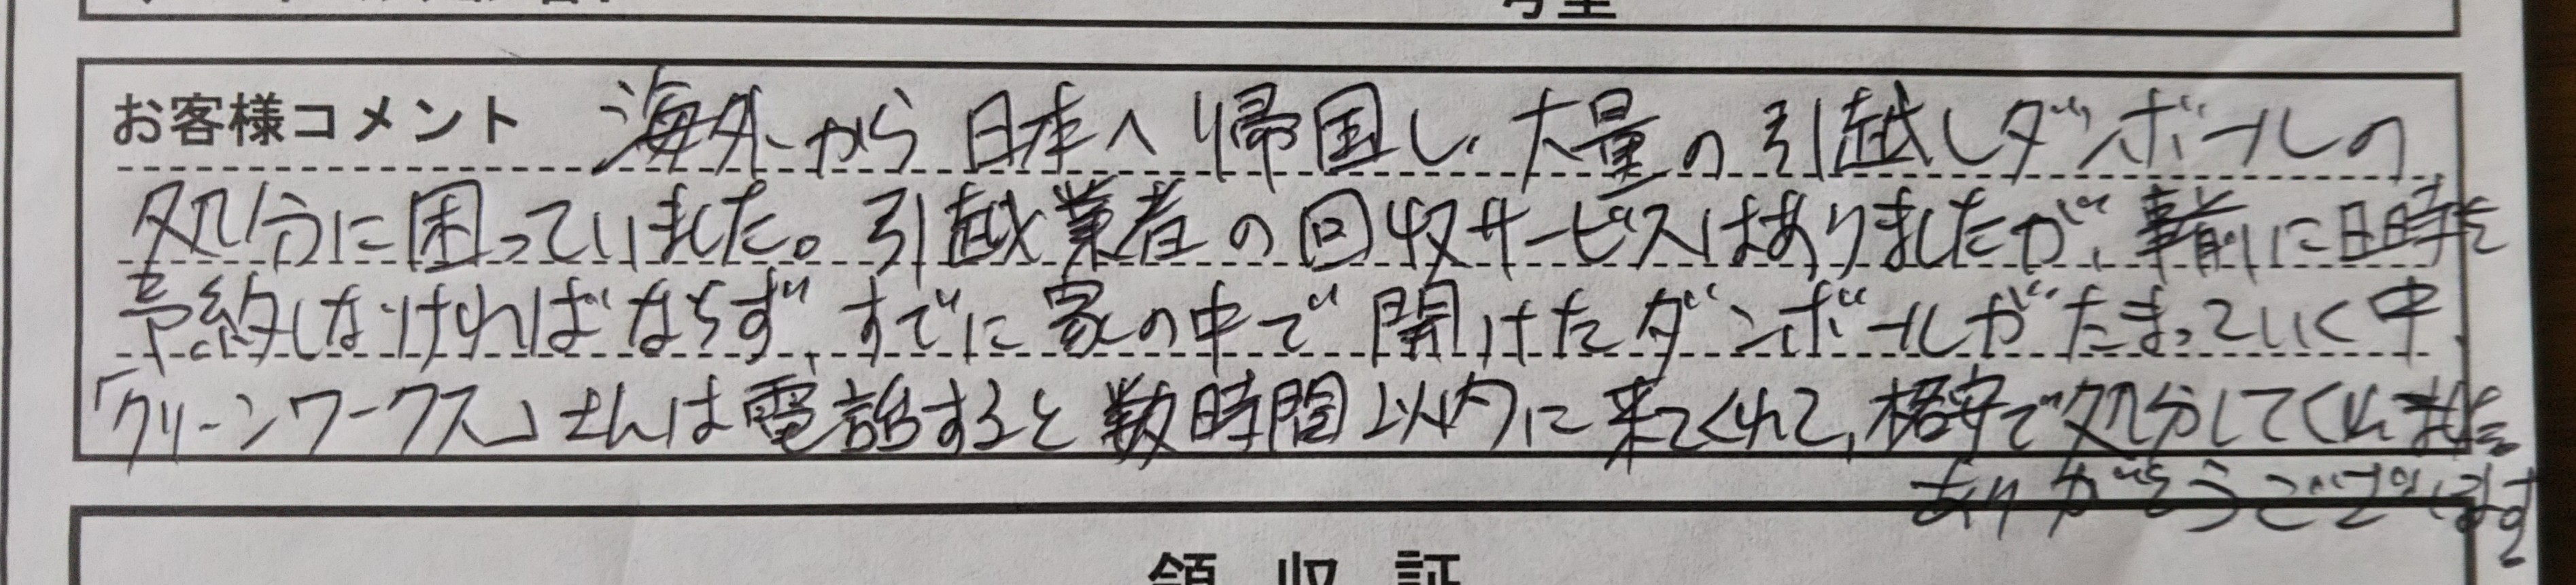 お客様コメント 海外から日本へ帰国し、大量の引越しダンボールの
処分に困っていました。引越業者の回収サービスはありましたが、事前に日時を
予約しなければならず、すでに家の中で開けたダンボールがたまっていく中、
「クリーンワークス」さんは電話すると数時間以内に来てくれて、格安で処分してくれました。
ありがとうございます
領収証